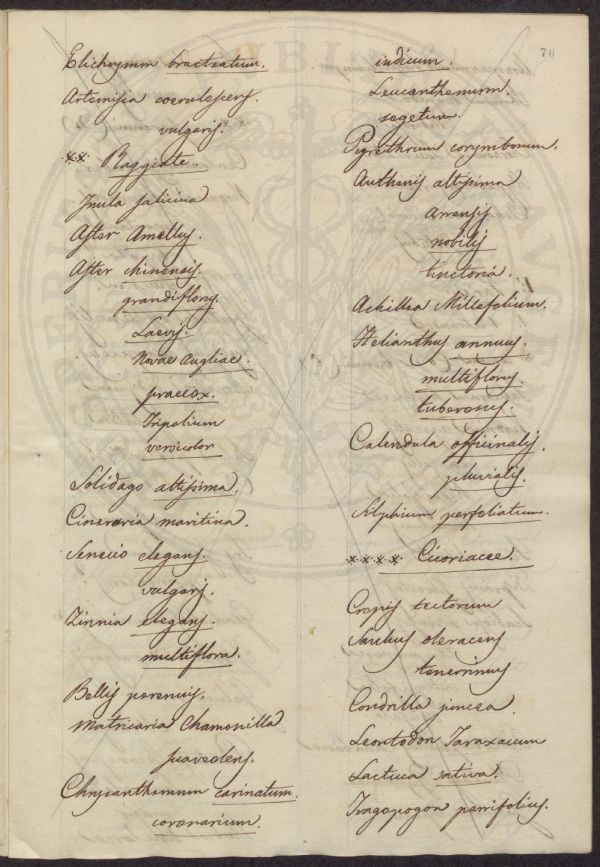 Elichrysum bracteatum.
Artemisia coerulescens.
vulgaris.
** Raggiate.
Inula salicina
Aster Amellus.
Aster chinensis.
grandiflorus.
Laevis.
Novae Angliae.
praecox.
Tripolium
versicolor
Solidago altissima.
Cineraria maritima.
Senecio elegans.
vulgaris.
Zinnia elegans.
multiflora.
Bellis perennis.
Matricaria Chamomilla
suaveolens.
Chrysanthemum carinatum.
coronarium.
indicum.
Leucanthemum.
segetum.
Pyrethrum corymbosum.
Anthemis altissima
arvensis
nobilis
tinctoria.
Achillea Millefolium.
Helianthus annuus.
multiflorus.
tuberosus.
Calendula officinalis.
pluvialis.
Silphium perfoliatum.
**** Cicoriacee.
Crepis tectorum
Sonchus oleraceus
tenerrimus
Condrilla juncea.
Leontodon Taraxacum
Lactuca sativa.
Tragopogon porrifolius.